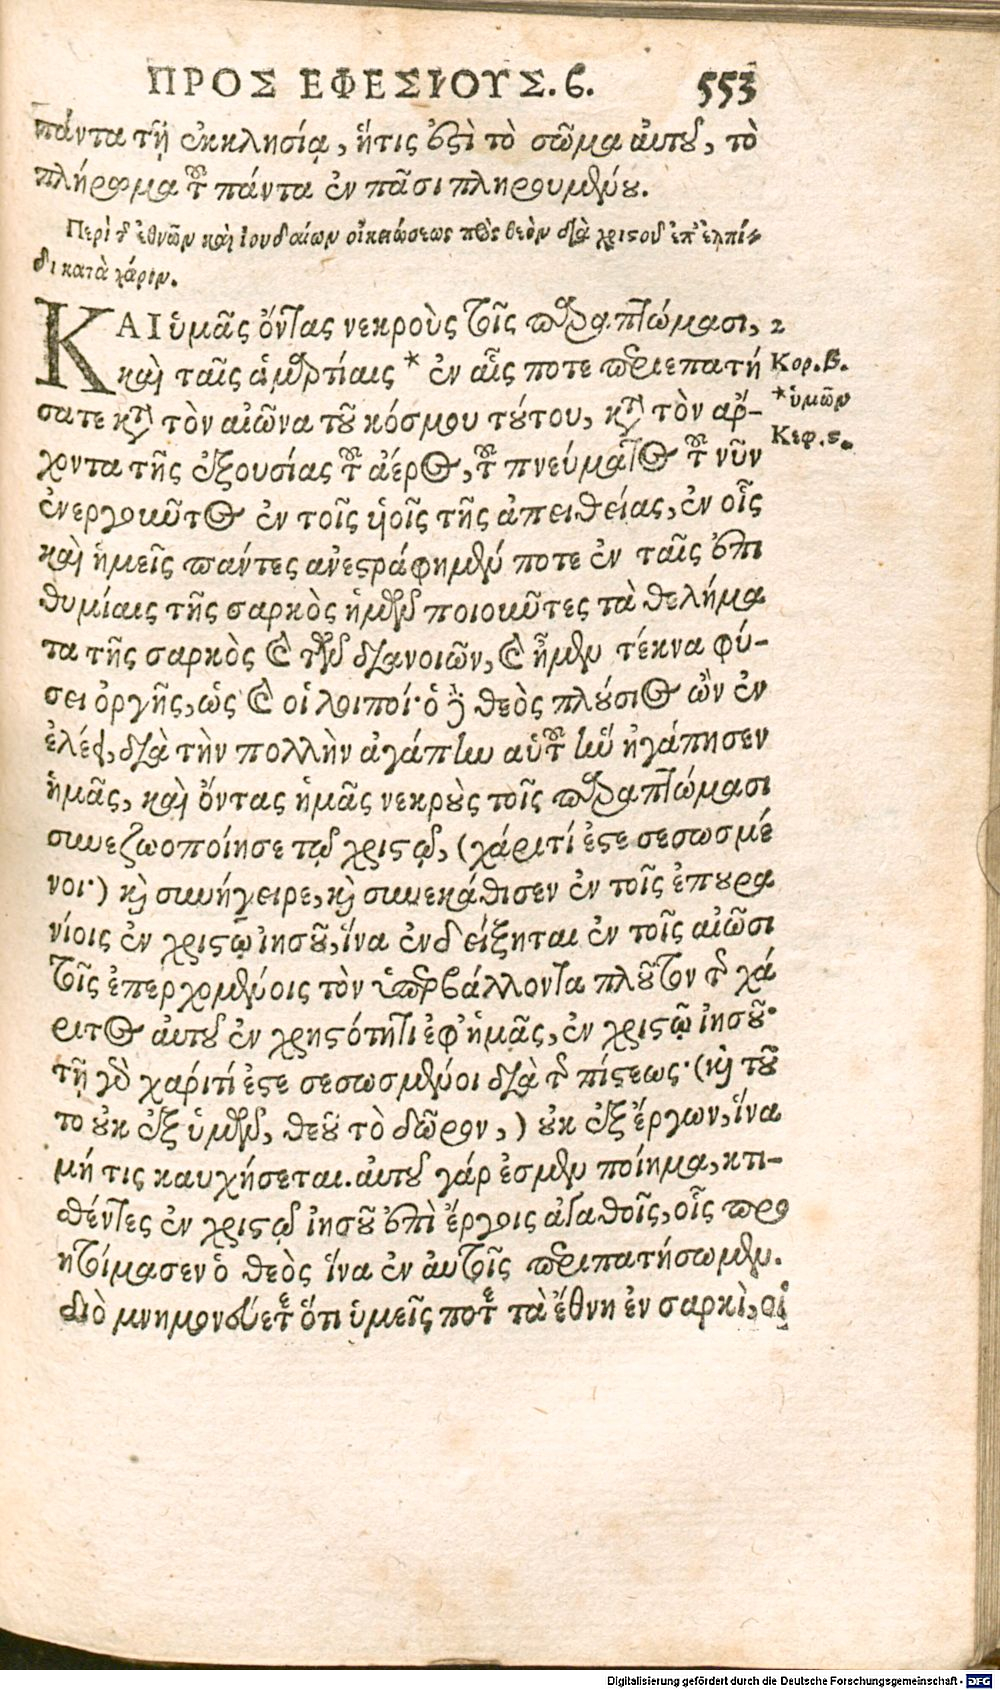 ΠΡΟΣ ΕΦΕΣΙΟΥΣ. β. 553
πάντα τῇ ἐκκλησίᾳ, ἥτις ἐστὶ τὸ σῶμα αὐτοῦ, τὸ
πλήρωμα τοῦ πάντα ἐν πᾶσι πληρουμένου.
Περὶ τῆς ἐθνῶν καὶ ἰουδαίων οἰκειώσεως πρὸς θεὸν διὰ χριστοῦ ἐπ' ἐλπί-
δι κατὰ χάριν.
ΚΑΙ ὑμᾶς ὄντας νεκροὺς τοῖς παραπτώμασι, 2
καὶ ταῖς ἁμαρτίαις * ἐν αἷς ποτε περιεπατή Κορ. β.
σατε κατὰ τὸν αἰῶνα τοῦ κόσμου τούτου, κατὰ τὸν ἄρ- *ὑμῶν
χοντα τῆς ἐξουσίας τοῦ ἀέρος, τοῦ πνεύματος τοῦ νῦν Κεφ. ς.
ἐνεργοῦντος ἐν τοῖς υἱοῖς τῆς ἀπειθείας, ἐν οἷς
καὶ ἡμεῖς πάντες ἀνεστράφημέν ποτε ἐν ταῖς ἐπι
θυμίαις τῆς σαρκὸς ἡμῶν ποιοῦντες τὰ θελήμα
τα τῆς σαρκὸς καὶ τῶν διανοιῶν, καὶ ἦμεν τέκνα φύ-
σει ὀργῆς, ὡς καὶ οἱ λοιποί· ὁ δὲ θεὸς πλούσιος ὢν ἐν
ἐλέει, διὰ τὴν πολλὴν ἀγάπην αὑτοῦ ἣν ἠγάπησεν
ἡμᾶς, καὶ ὄντας ἡμᾶς νεκροὺς τοῖς παραπτώμασι
συνεζωοποίησε τῷ χριστῷ, (χάριτί ἐστε σεσωσμέ
νοι·) καὶ συνήγειρε, καὶ συνεκάθισεν ἐν τοῖς ἐπουρα
νίοις ἐν χριστῷ ἰησοῦ, ἵνα ἐνδείξηται ἐν τοῖς αἰῶσι
τοῖς ἐπερχομένοις τὸν ὑπερβάλλοντα πλοῦτον τῆς χά
ριτος αὐτοῦ ἐν χρηστότητι ἐφ' ἡμᾶς, ἐν χριστῷ ἰησοῦ·
τῇ γὰρ χάριτί ἐστε σεσωσμένοι διὰ τῆς πίστεως· (καὶ τοῦ
το οὐκ ἐξ ὑμῶν, θεοῦ τὸ δῶρον,) οὐκ ἐξ ἔργων, ἵνα
μή τις καυχήσεται. αὐτοῦ γάρ ἐσμεν ποίημα, κτι-
σθέντες ἐν χριστῷ ἰησοῦ ἐπὶ ἔργοις ἀγαθοῖς, οἷς προ
ητοίμασεν ὁ θεὸς ἵνα ἐν αὐτοῖς περιπατήσωμεν.
Διὸ μνημονεύετε ὅτι ὑμεῖς ποτε τὰ ἔθνη ἐν σαρκὶ, οἱ
Digitalisierung gefördert durch die Deutsche Forschungsgemeinschaft - DFG